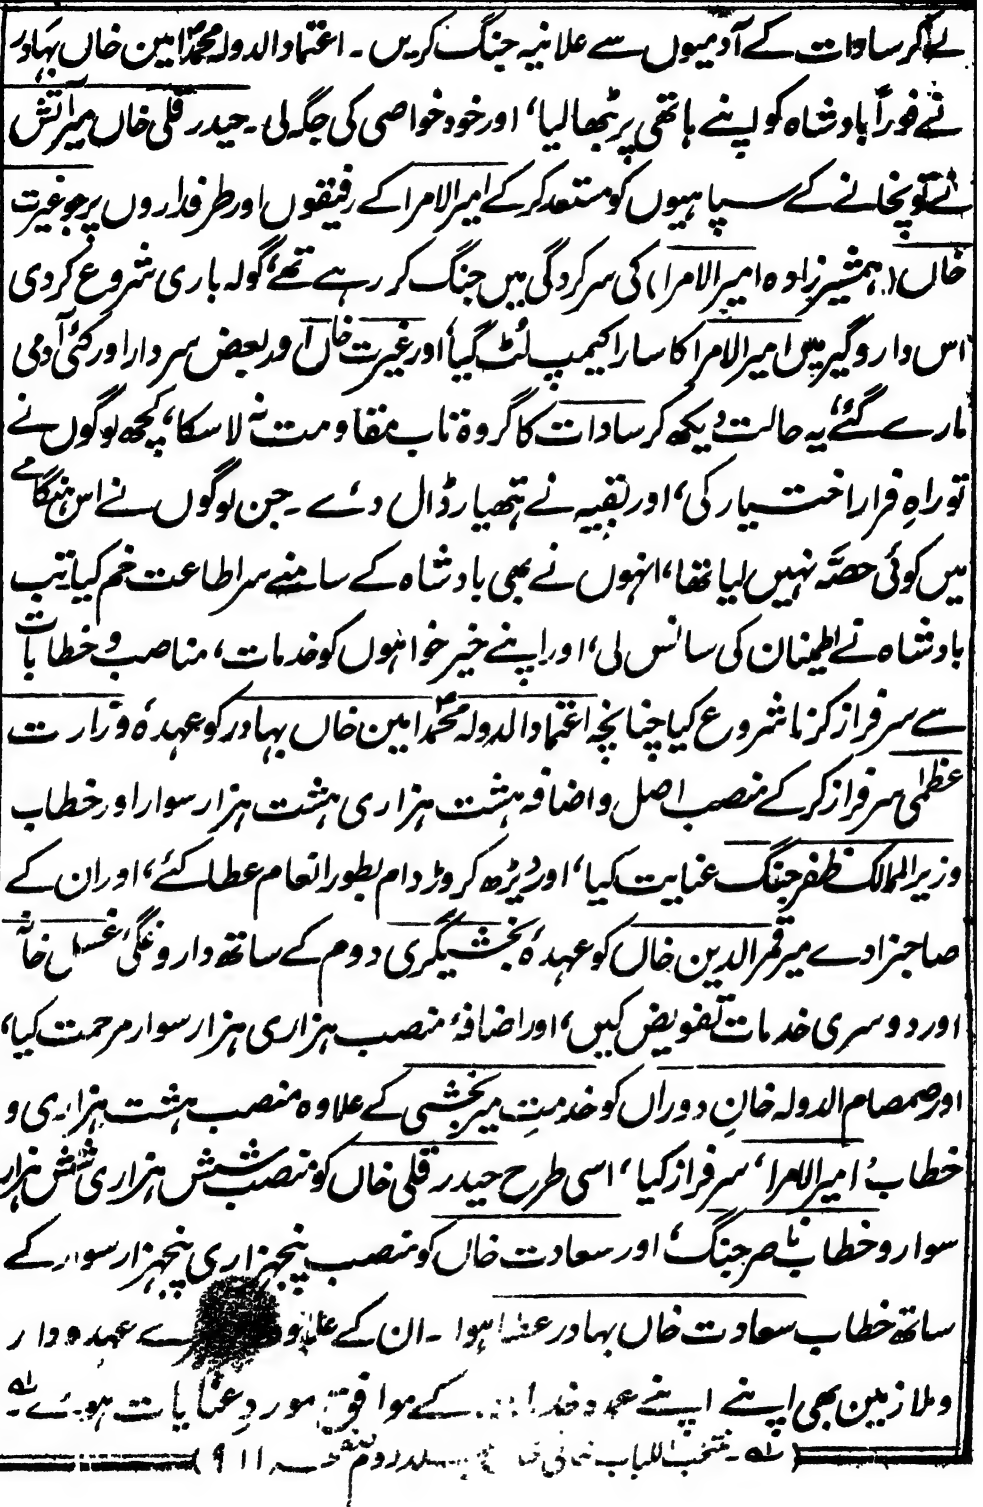 لے کر سادات کے آدمیوں سے علانیہ جنگ کریں ۔ اعتماد الدولہ محمدؐ امین خاں بہادر
نے فوراً بادشاہ کو اپنے ہاتھی پر بٹھا لیا، اور خود خواصی کی جگہ لی ۔ حیدر قلی خاں میر آتش
نے توپخانے کے سپاہیوں کو مستعد کر کے امیر الامرا کے رفیقوں اور طرفداروں پر جو غیرت
خاں (ہمشیر زادہ امیر الامرا) کی سرکردگی میں جنگ کر رہے تھے، گولہ باری شروع کر دی
اس دار و گیر میں امیر الامرا کا سارا کیمپ لُٹ گیا، اور غیرت خاں اور بعض سردار اور کئی آدمی
مارے گئے، یہ حالت دیکھ کر سادات کا گروہ تاب مقاومت نہ لا سکا، کچھ لوگوں نے
تو راہِ فرار اختیار کی، اور بقیہ نے ہتھیار ڈال دئے ۔ جن لوگوں نے اس ہنگامے
میں کوئی حصّہ نہیں لیا تھا، انہوں نے بھی بادشاہ کے سامنے سر اطاعت خم کیا، تب
بادشاہ نے اطمینان کی سانس لی، اور اپنے خیر خواہوں کو خدمات، مناصب و خطابات
سے سرفراز کرنا شروع کیا چنانچہ اعتماد الدولہ محمدؐ امین خاں بہادر کو عہدۂ وزارت
عظمٰی سرفراز کر کے منصب اصل و اضافہ ہشت ہزاری ہشت ہزار سوار اور خطاب
وزیر الممالک ظفر جنگ عنایت کیا، اور ڈیڑھ کروڑ دام بطور انعام عطا کئے، اور ان کے
صاحبزادے میر قمر الدین خاں کو عہدۂ بخشیگری دوم کے ساتھ داروغگیٔ غسل خانہ
اور دوسری خدمات تفویض کیں، اور اضافۂ منصب ہزاری ہزار سوار مرحمت کیا،
اور صمصام الدولہ خانِ دوراں کو خدمتِ میر بخشی کے علاوہ منصب ہشت ہزاری و
خطاب امیر الامرا، سرفراز کیا، اسی طرح حیدر قلی خاں کو منصب شش ہزاری شش ہزار
سوار و خطاب ناصر جنگ، اور سعادت خاں کو منصب پنجہزاری پنجہزار سوار کے
ساتھ خطاب سعادت خاں بہادر عطا ہوا ۔ ان کے علاوہ عہدہ دار
و ملازمین بھی اپنے اپنے عہدہ کے موافق مورد عنایات ہوئے ۔ ؎
(؎ ۔ منتخب اللباب دوم صفحہ ۹۱۱)